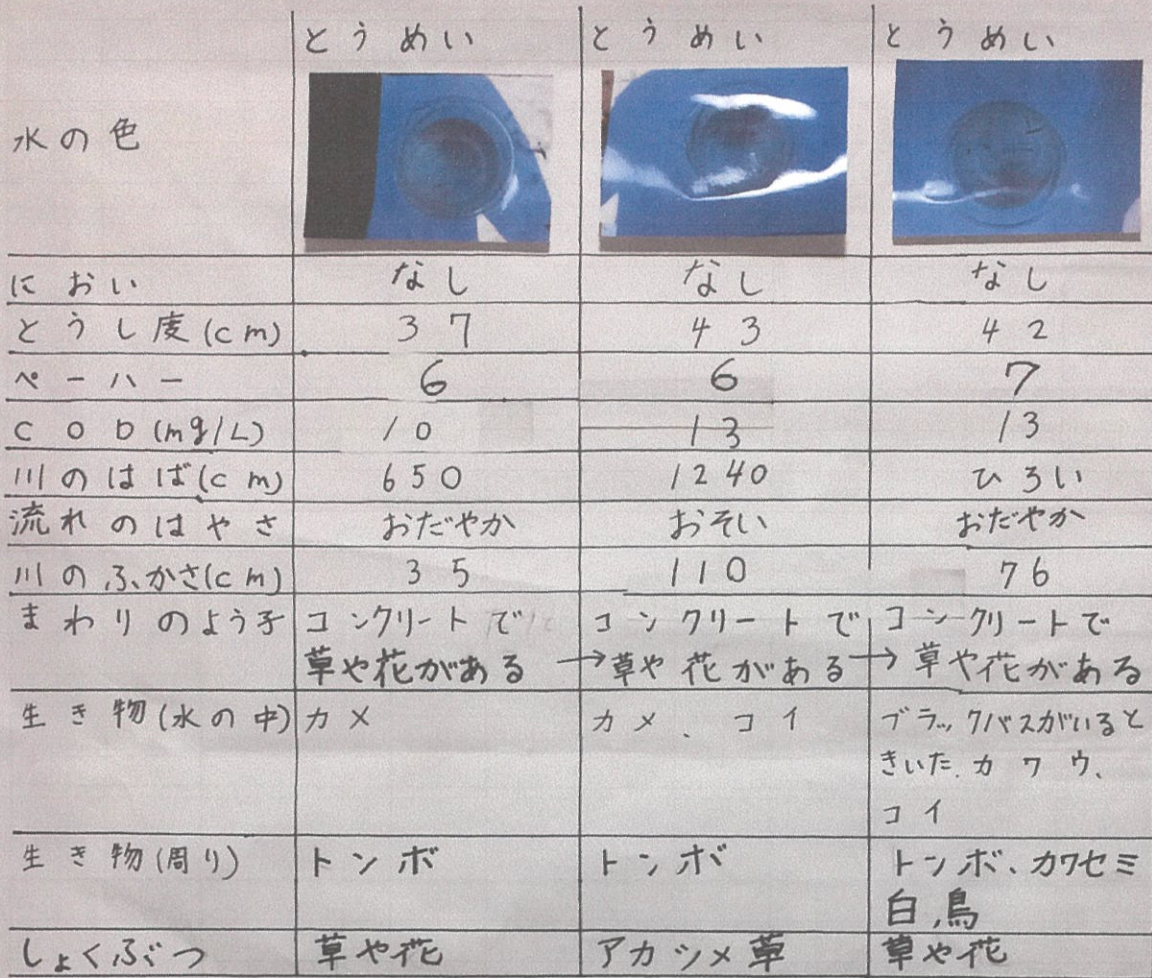 とうめい とうめい とうめい
水の色
におい なし なし なし
とうし度(cm) 37 43 42
ペーハー 6 6 7
COD(mg/L) 10 13 13
川のはば(cm) 650 1240 ひろい
流れのはやさ おだやか おそい おだやか
川のふかさ(cm) 35 110 76
まわりのよう子 コンクリートで コンクリートで コンクリートで
草や花がある →草や花がある→ 草や花がある
生き物(水の中) カメ カメ、コイ ブラックバスがいると
きいた、カワウ、
コイ
生き物(周り) トンボ トンボ トンボ、カワセミ
白,鳥
しょくぶつ 草や花 アカツメ草 草や花